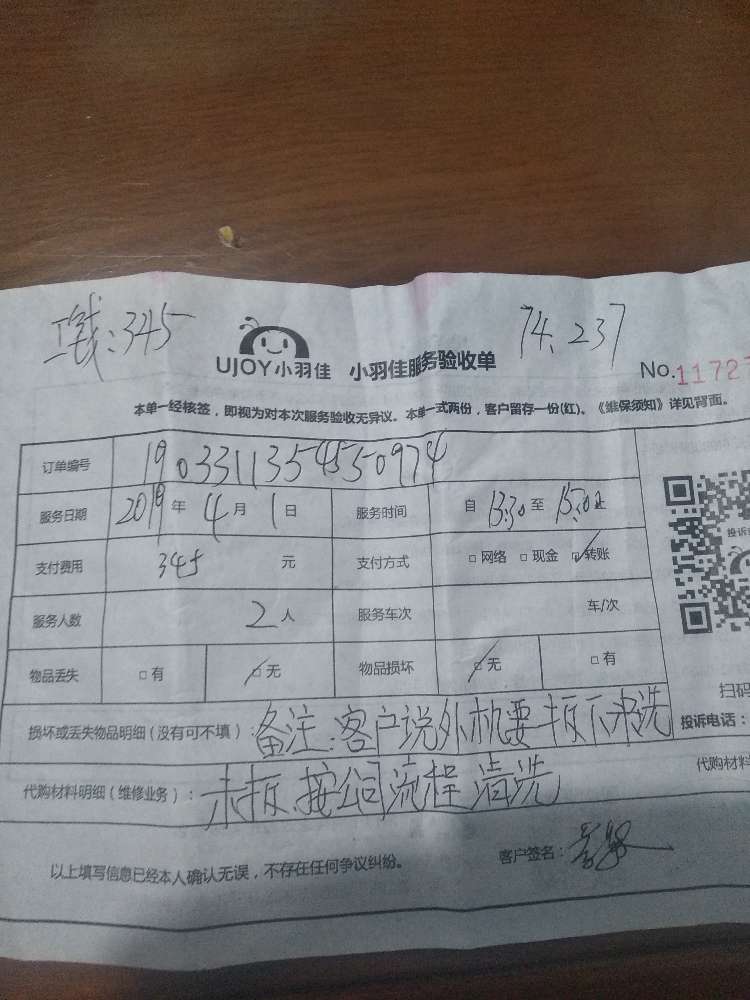 工钱:345
74.237
UJOY小羽佳 小羽佳服务验收单
No.11727
本单一经核签，即视为对本次服务验收无异议。本单一式两份，客户留存一份(红)。《维保须知》详见背面。
订单编号 190331135455 0974
服务日期 2019年4月1日 服务时间 自13:30至15:30止
支付费用 345 元 支付方式 □网络 □现金 ☑转账
服务人数 2人 服务车次 车/次
物品丢失 □有 ☑无 物品损坏 ☑无 □有
扫码
损坏或丢失物品明细（没有可不填）：备注:客户说外机要拆下来洗
投诉电话：
代购材料明细（维修业务）：未拆.按公司流程清洗
代购材料
以上填写信息已经本人确认无误，不存在任何争议纠纷。 客户签名：